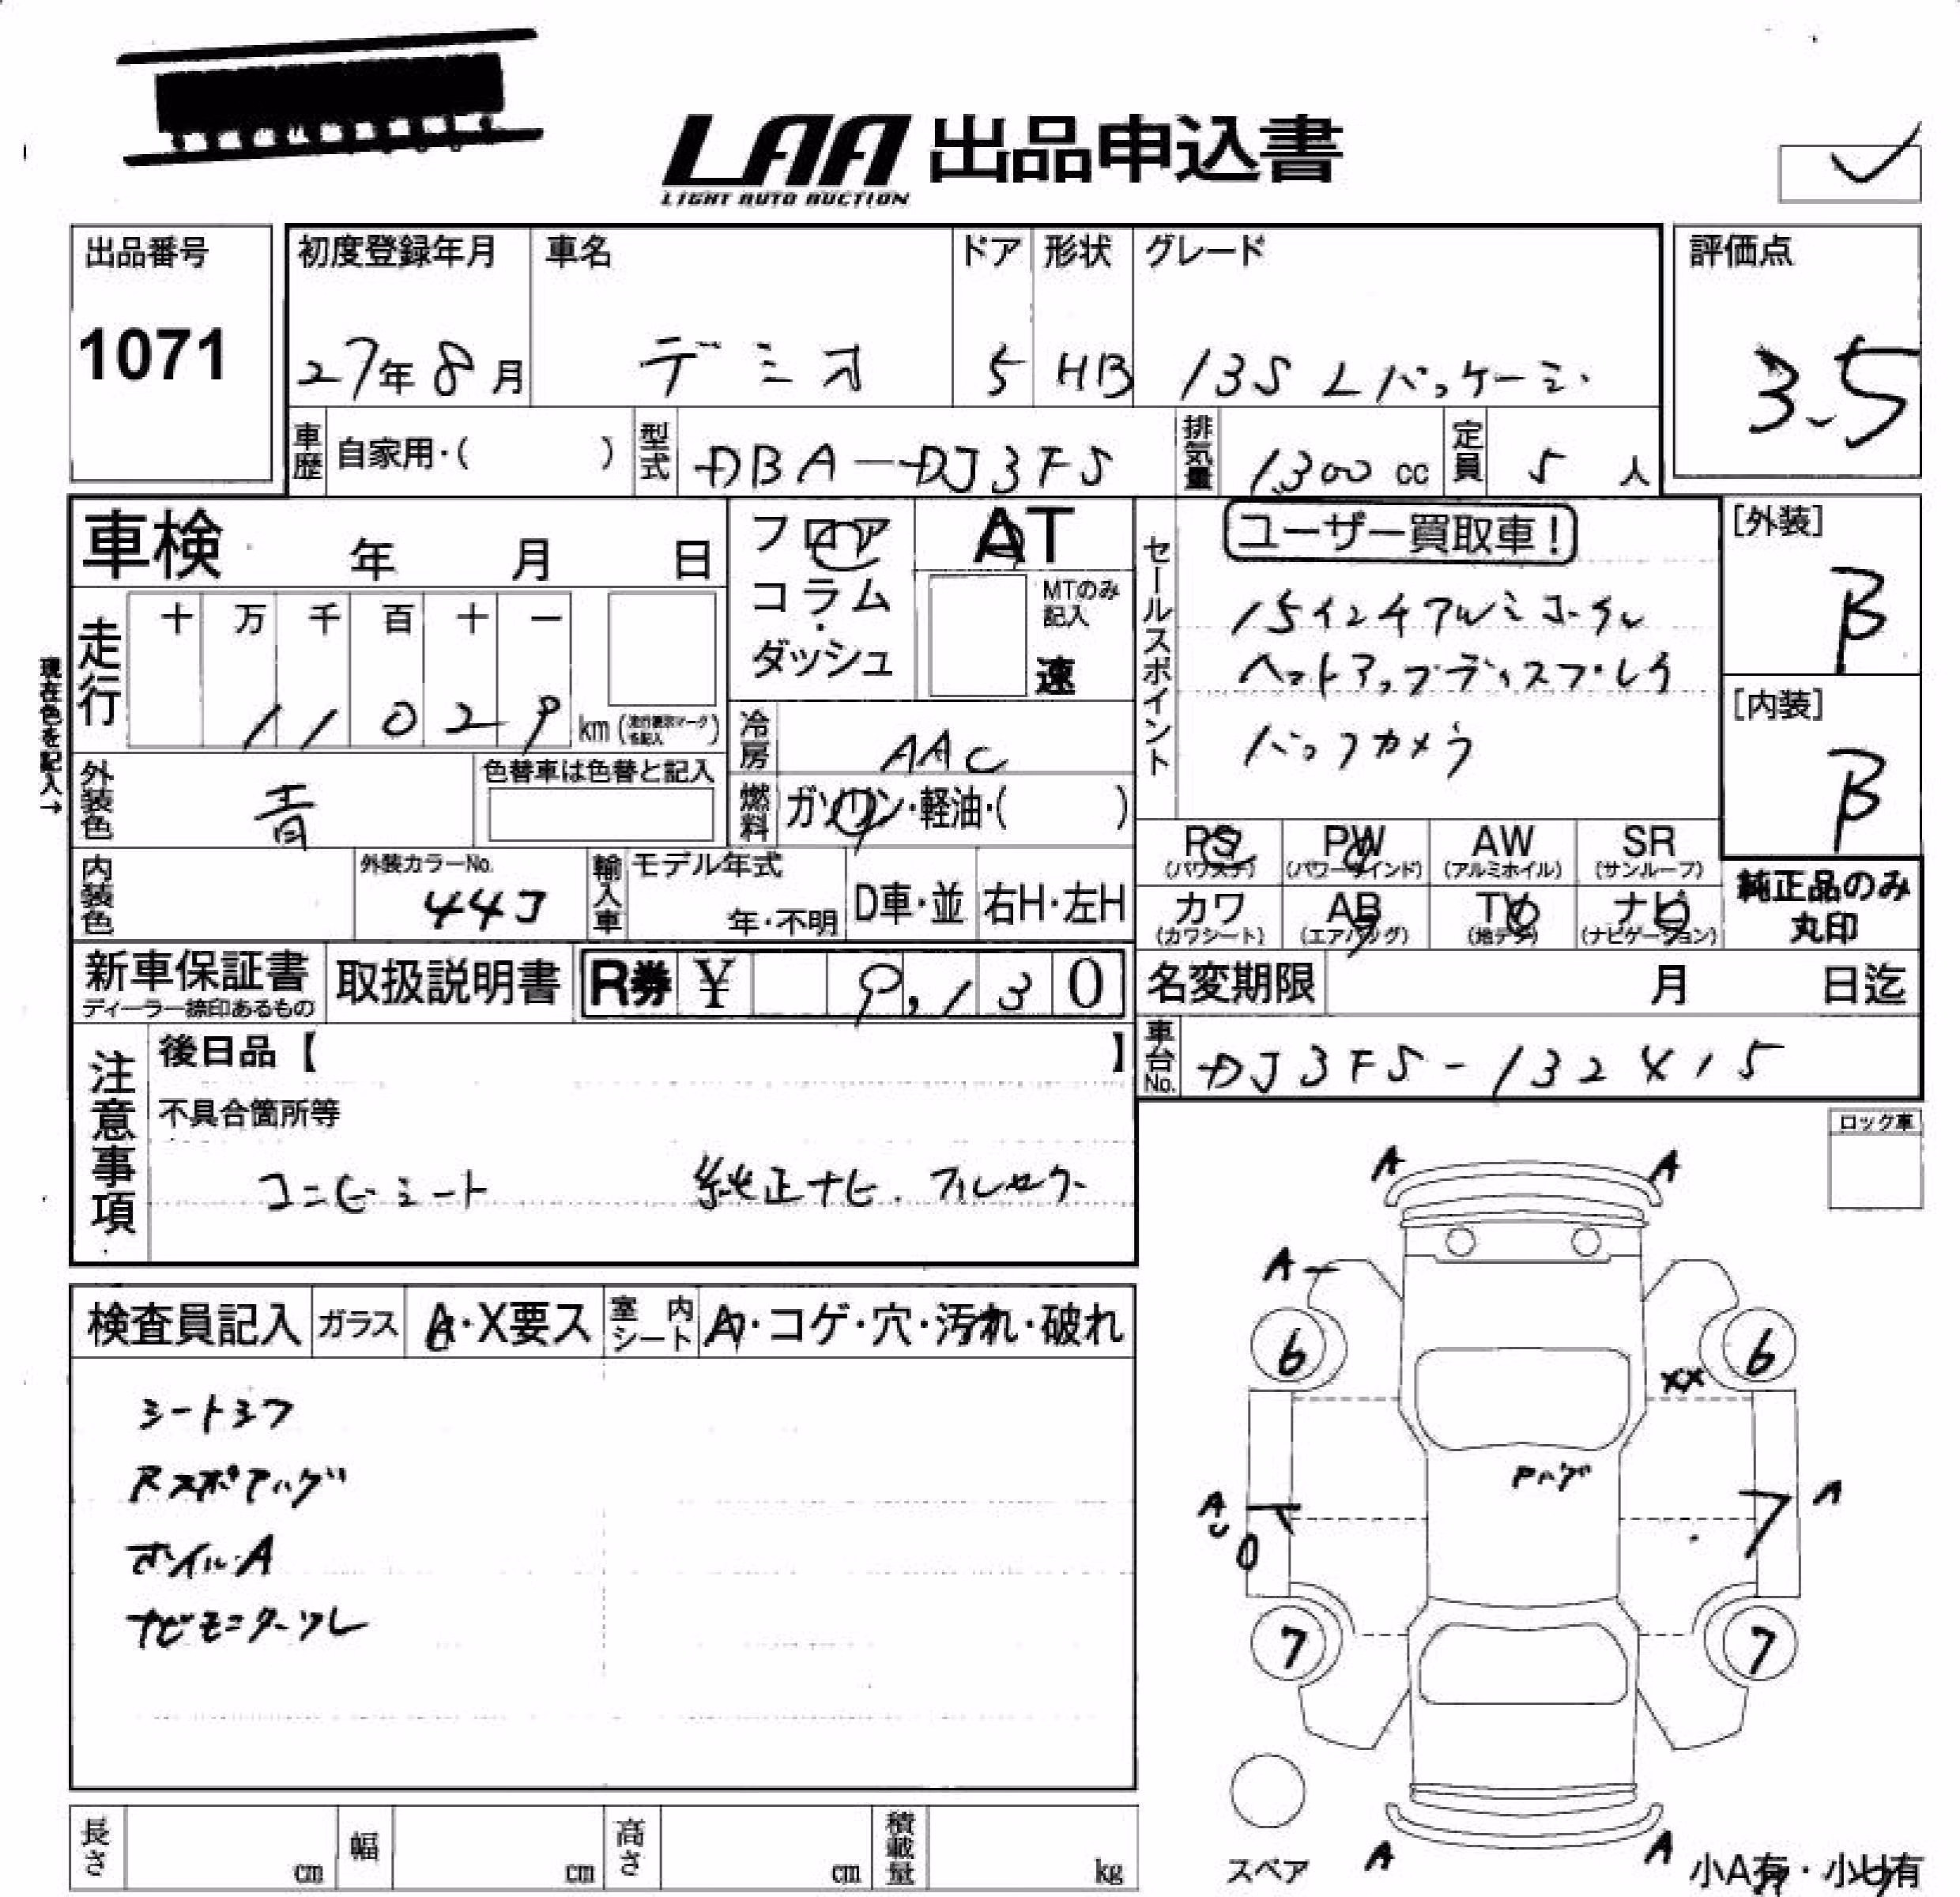 LAA 出品申込書
LIGHT AUTO AUCTION
出品番号
1071
初度登録年月
27年8月
車名
デミオ
ドア
5
形状
HB
グレード
13S Lパッケージ
評価点
3.5
車歴 自家用・( )
型式 DBA-DJ3FS
排気量 1,300 cc
定員 5 人
車検 年 月 日
フロア
コラム
・
ダッシュ
AT
MTのみ
記入
速
セールスポイント
ユーザー買取車!
15インチアルミホイール
ヘッドアップディスプレイ
バックカメラ
[外装]
B
[内装]
B
現在色を記入→
走行
十 万 千 百 十 一
1 1 0 2 9 km (走行表示マーク
を記入)
冷房 AAC
外装色 青
色替車は色替と記入
燃料 ガソリン・軽油・( )
内装色
外装カラーNo.
44J
輸入車
モデル年式
年・不明
D車・並
右H・左H
PS PW AW SR
(パワステ) (パワーウインド) (アルミホイル) (サンルーフ)
カワ AB TV ナビ
(カワシート) (エアバッグ) (地デジ) (ナビゲーション)
純正品のみ
丸印
新車保証書
ディーラー捺印あるもの
取扱説明書
R券 ¥ 9,130
名変期限 月 日迄
車台No. DJ3FS-132415
注意事項
後日品【 】
不具合箇所等
コンビシート 純正ナビ. フルセグ
ロック車
検査員記入
ガラス A・X要ス
室内シート
・コゲ・穴・汚れ・破れ
シートシワ
Rスポアハゲ
ホイルA
ナビモニターワレ
A A
A
6 6
XX
Pハゲ
A
U
A
7 7
A A
スペア
小A有・小U有
長さ cm
幅 cm
高さ cm
積載量 kg